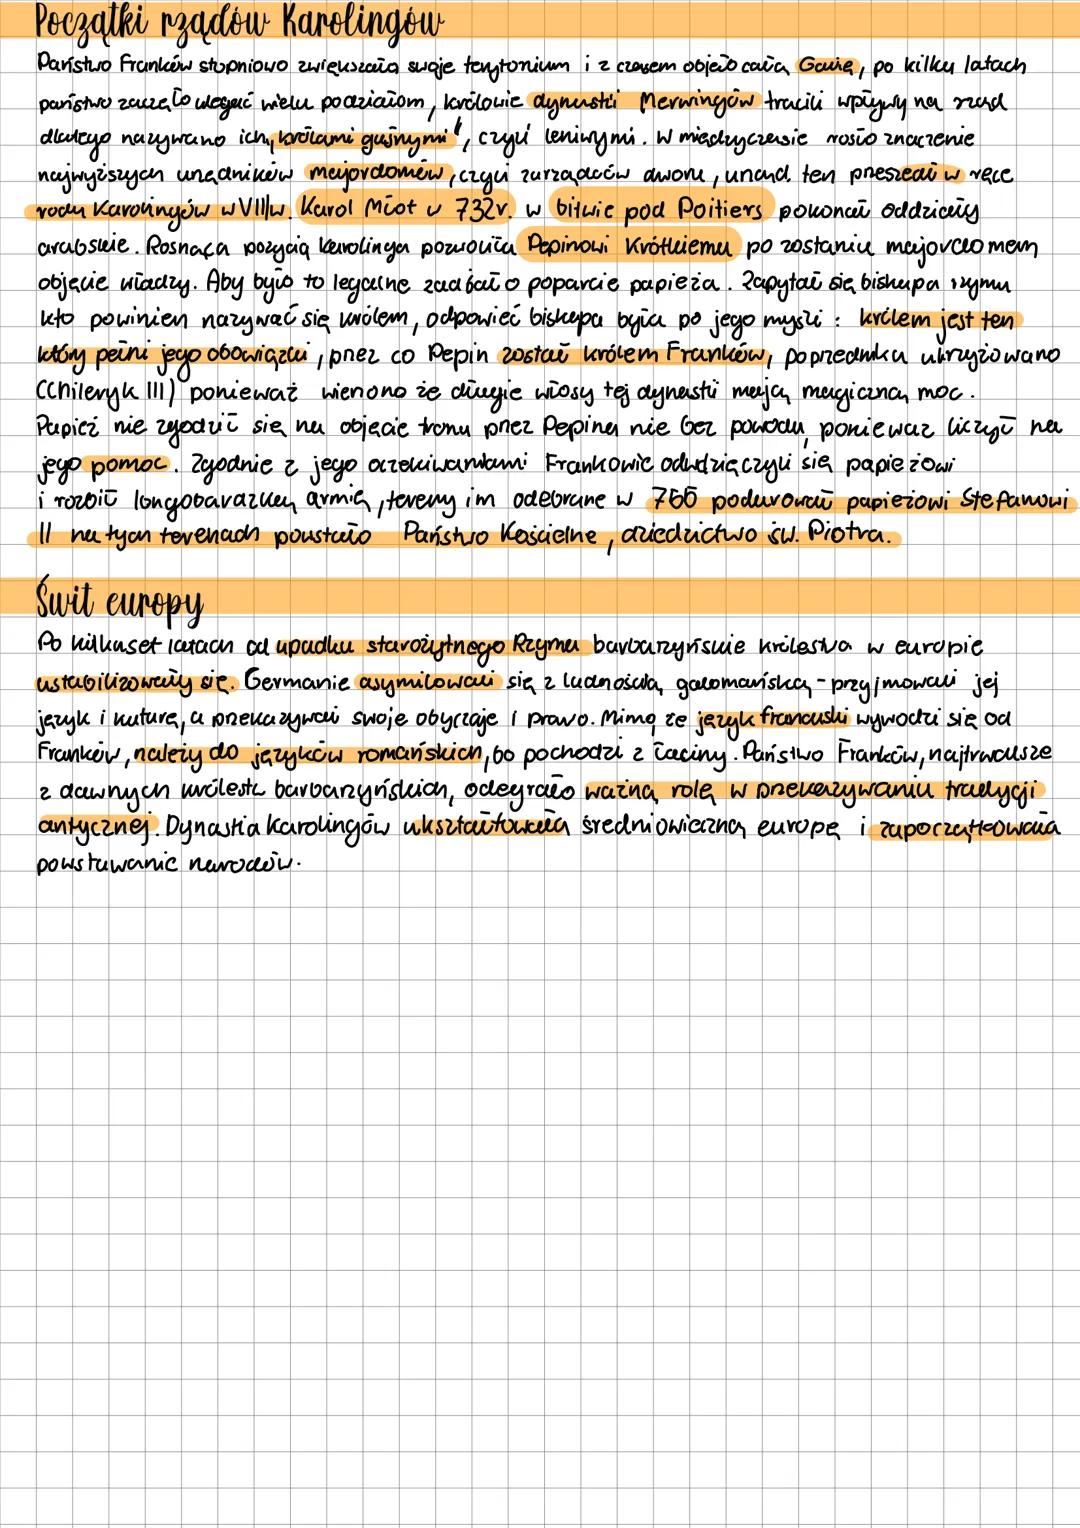 Początki rządów Karolingów
Państwo Franków stopniowo zwiększało swoje terytorium i z czasem objęło całą Galię, po kilku latach
państwo zaczęło ulegać wielu podziałom, królowie dynastii Merwingów tracili wpływy na rząd
dlatego nazywano ich „królami gnuśnymi", czyli leniwymi. W międzyczasie rosło znaczenie
najwyższych urzędników majordomów, czyli zarządców dworu, urząd ten przeszedł w ręce
rodu Karolingów w VII w. Karol Młot w 732r. w bitwie pod Poitiers pokonał oddziały
arabskie. Rosnąca pozycja karolinga pozwoliła Pepinowi Krótkiemu po zostaniu majordomem
objęcie władzy. Aby było to legalne zadbał o poparcie papieża. Zapytał się biskupa rzymu
kto powinien nazywać się królem, odpowieć biskupa była po jego myśli: królem jest ten
który pełni jego obowiązki, przez co Pepin został królem Franków, poprzednika ukrzyżowano
(Chileryk III) ponieważ wierzono że długie włosy tej dynastii mają magiczną moc.
Papież nie zgodził się na objęcie tronu przez Pepina nie bez powodu, ponieważ liczył na
jego pomoc. Zgodnie z jego oczekiwaniami Frankowie odwdzięczyli się papieżowi
i rozbił longobardzką armię, tereny im odebrane w 756 podarował papieżowi Stefanowi
II na tych terenach powstało Państwo Kościelne, dziedzictwo św. Piotra.
Świt europy
Po kilkuset latach od upadku starożytnego Rzymu barbarzyńskie królestwa w europie
ustabilizowały się. Germanie asymilowali się z ludnością galomańską - przyjmowali jej
język i kulturę, a przekazywali swoje obyczaje i prawo. Mimo że język francuski wywodzi się od
Franków, należy do języków romańskich, bo pochodzi z łaciny. Państwo Franków, najtrwalsze
z dawnych królestw barbarzyńskich, odegrało ważną rolę w przekazywaniu tradycji
antycznej. Dynastia Karolingów ukształtowała średniowieczną europę i zapoczątkowała
powstawanie narodów.